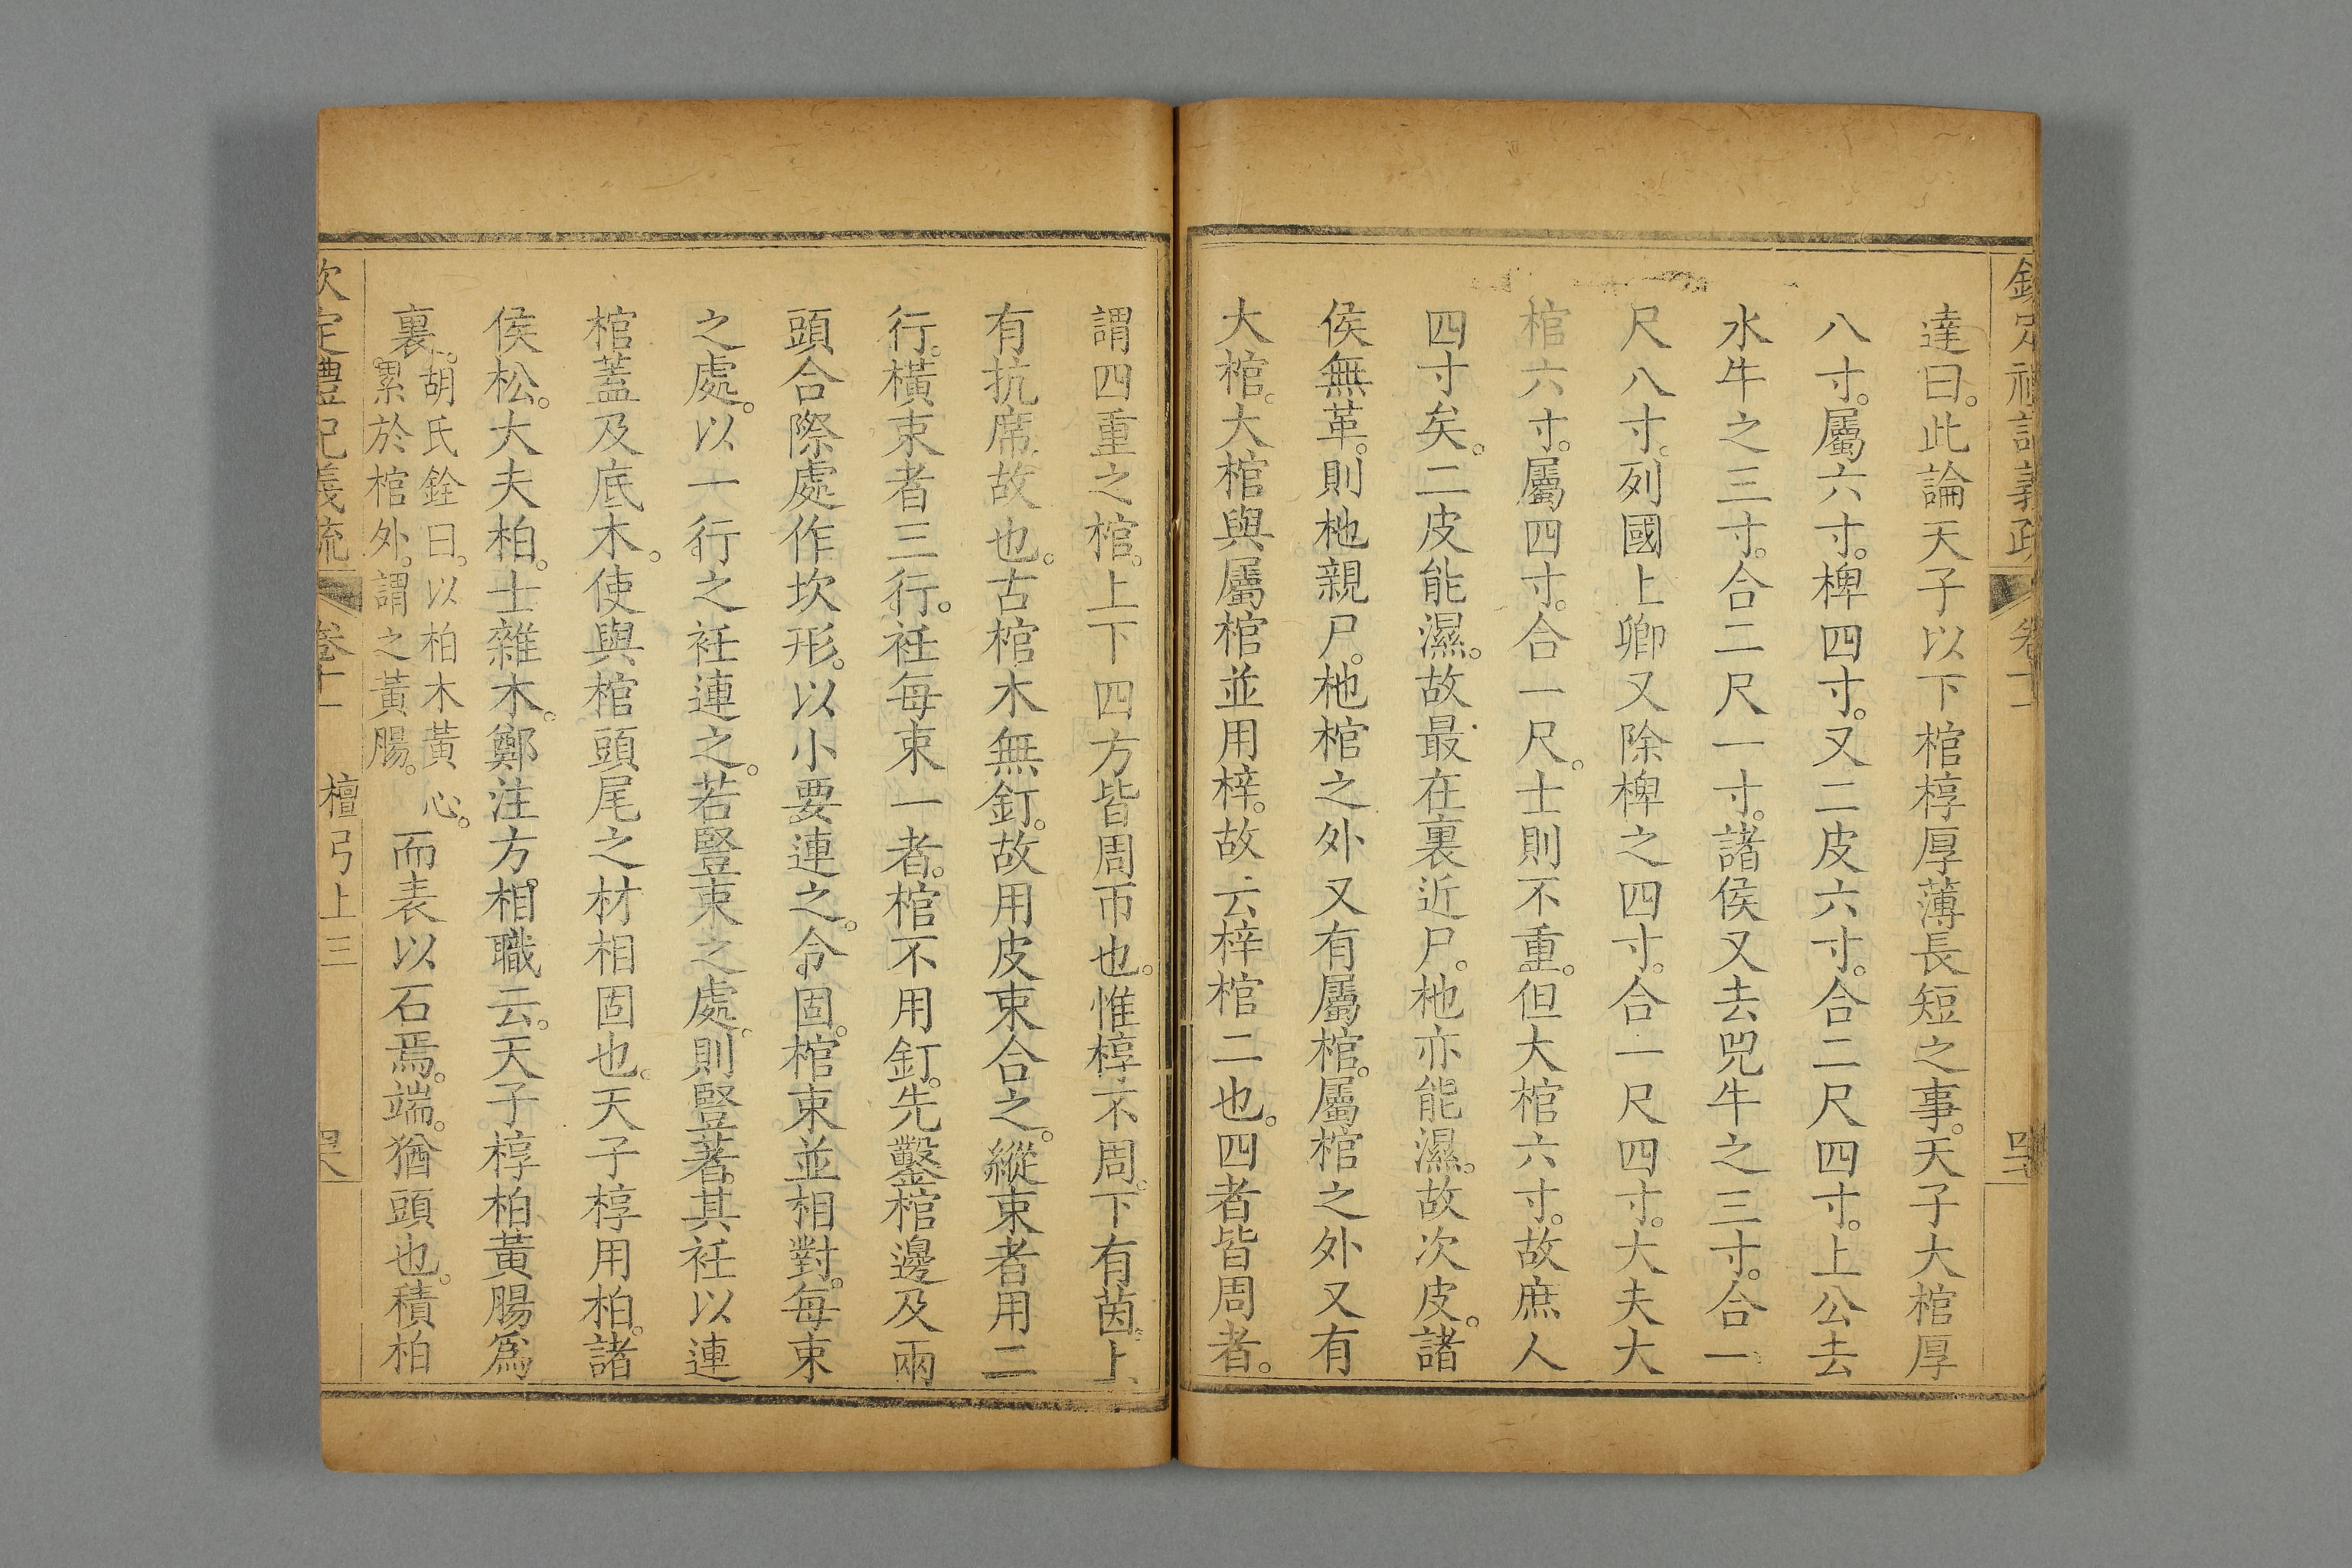 達曰。此論天子以下棺椁厚薄長短之事。天子大棺厚
八寸。屬六寸。椑四寸。又二皮六寸。合二尺四寸。上公去
水牛之三寸。合二尺一寸。諸侯又去兕牛之三寸。合一
尺八寸。列國上卿又除椑之四寸。合一尺四寸。大夫大
棺六寸。屬四寸。合一尺。士則不重。但大棺六寸。故庶人
四寸矣。二皮能濕。故最在裏近尸。杝亦能濕。故次皮。諸
侯無革。則杝親尸。杝棺之外又有屬棺。屬棺之外又有
大棺。大棺與屬棺並用梓。故云梓棺二也。四者皆周者。
謂四重之棺。上下四方皆周帀也。惟椁不周。下有茵。上
有抗席故也。古棺木無釘。故用皮束合之。縱束者用二
行。橫束者三行。衽每束一者。棺不用釘。先鑿棺邊及兩
頭合際處作坎形。以小要連之。令固。棺束並相對。每束
之處。以一行之衽連之。若豎束之處。則豎著。其衽以連
棺蓋及底木。使與棺頭尾之材相固也。天子椁用柏。諸
侯松。大夫柏。士雜木。鄭注方相職云。天子椁柏黃腸爲
裏。胡氏銓曰。以柏木黃心。累於棺外。謂之黃腸。而表以石焉。端。猶頭也。積柏
欽定禮記義疏 卷十一 檀弓上三